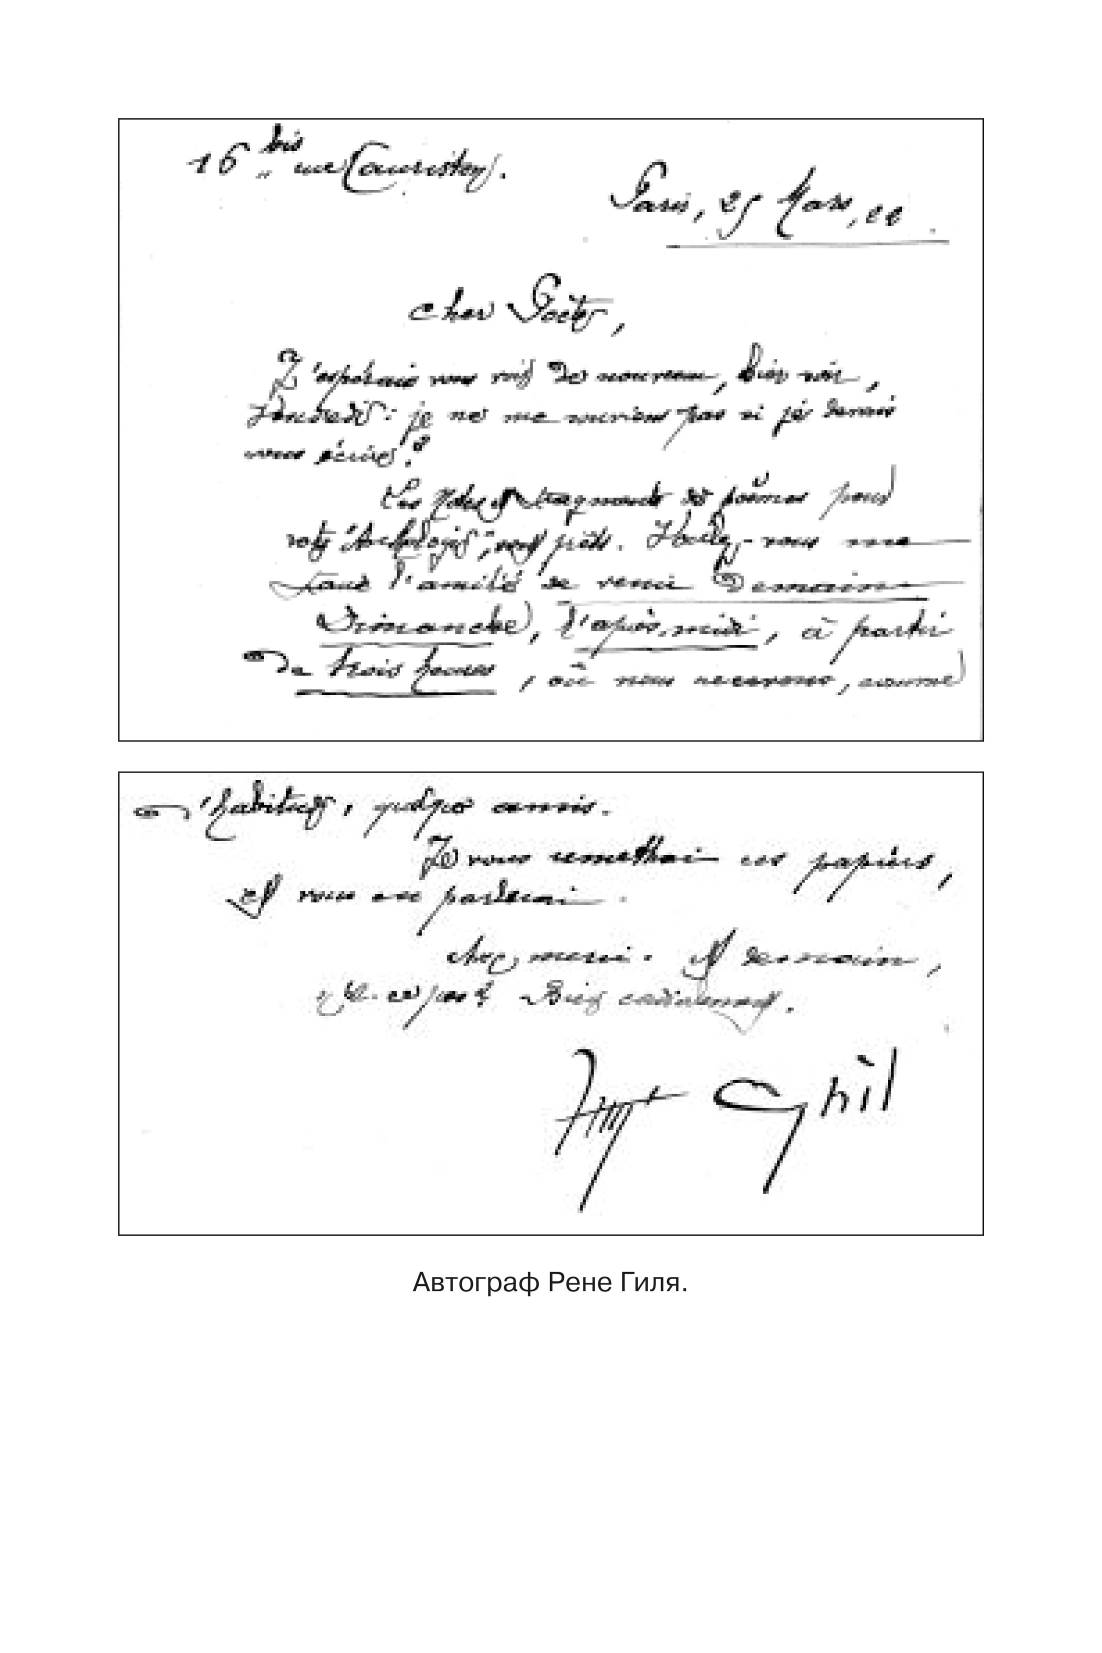 16 bis rue Lauriston.
Paris, 25 Mars, 22
Cher Poète,
J'espérais vous voir de nouveau, hier soir,
Vendredi : je ne me souviens pas si je devais
vous écrire ?
Les Notes et fragments de poèmes pour
votre "Anthologie", sont prêts. Voulez-vous me
faire l'amitié de venir Demain
Dimanche, l'après-midi, à partir
De trois heures, où nous recevons, comme
D'habitude, quelques amis.
Je vous remettrai ces papiers,
et vous en parlerai.
merci. A demain,
n'est-ce pas ? Bien cordialement.
René Ghil
Автограф Рене Гиля.